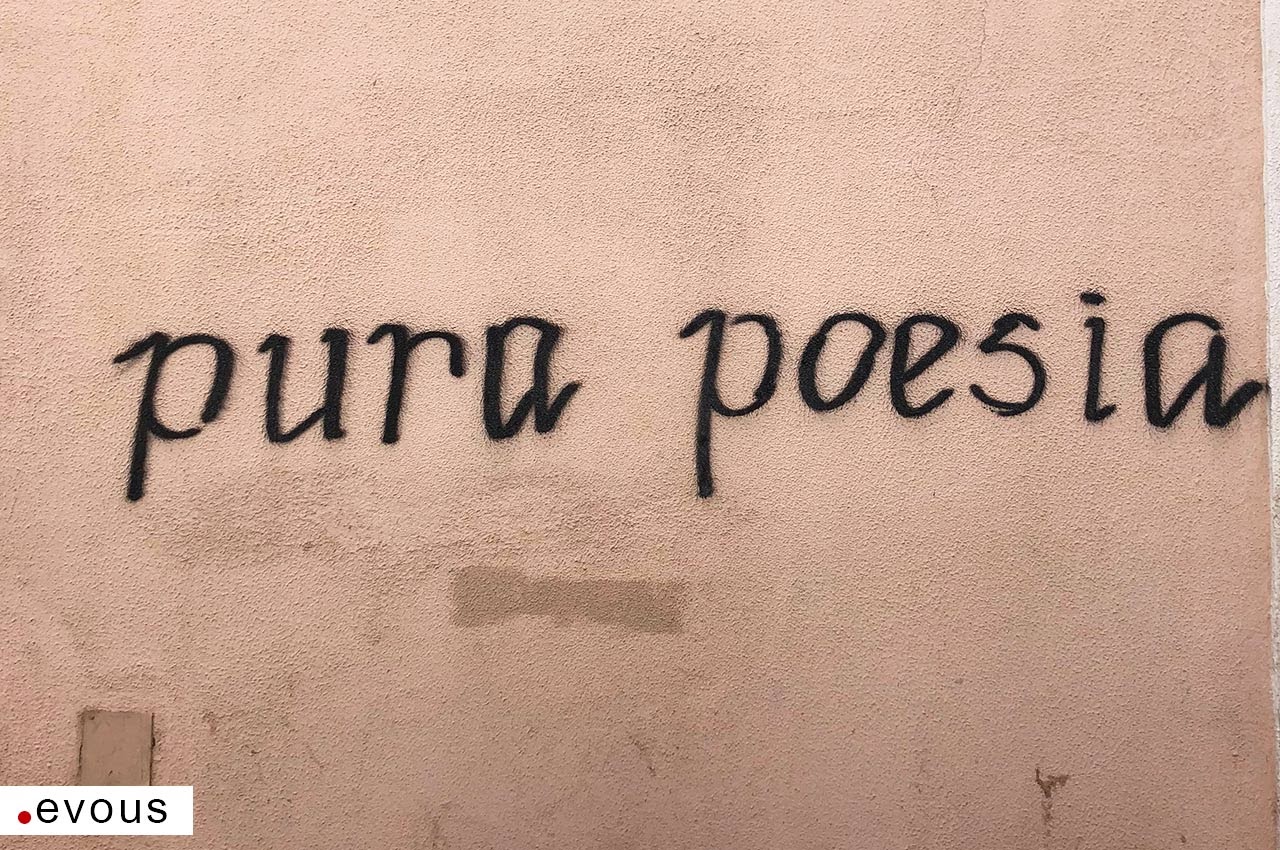 pura poesia
.evous